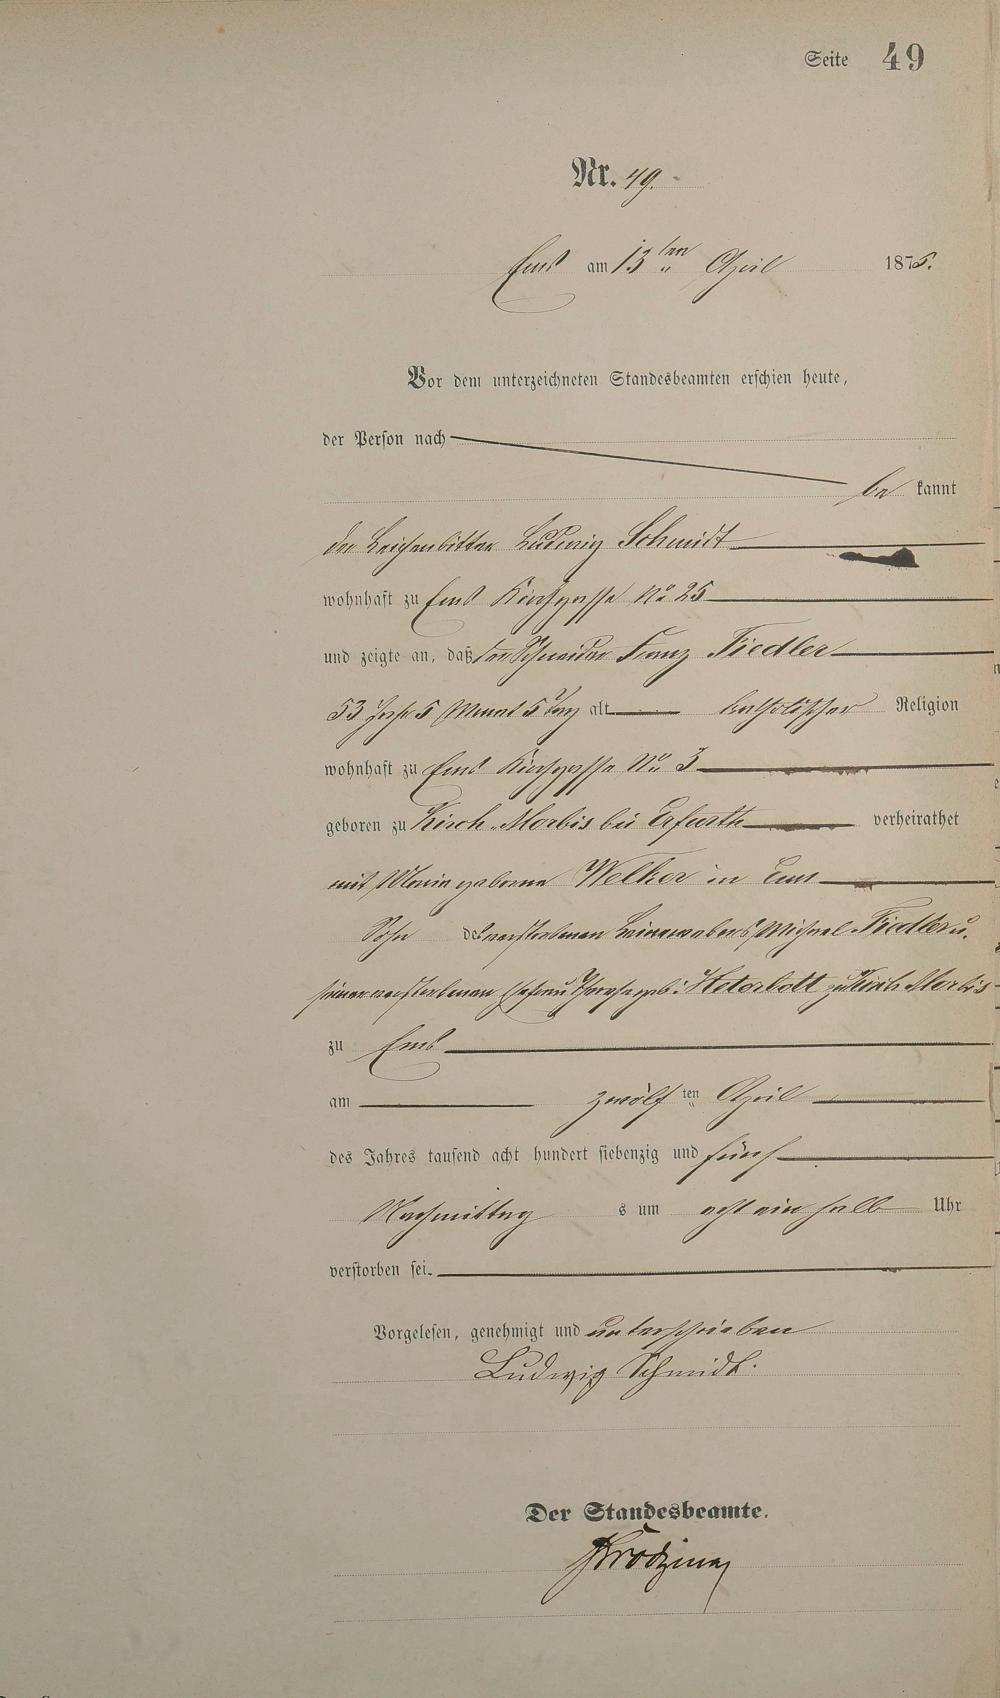 Seite 49
Nr. 49.
Ems am 13ten April 1875.
Vor dem unterzeichneten Standesbeamten erschien heute,
der Person nach
be kannt
der Leichenbitter Ludwig Schmidt
wohnhaft zu Ems Kirchgasse No 25
und zeigte an, daß der Schneider Franz Fiedler
53 Jahr 5 Monat 5 Tag alt katholischer Religion
wohnhaft zu Ems Kirchgasse No 3
geboren zu Kirch-Morbis bei Erfurth verheirathet
mit Maria geborne Welker in Ems
Sohn des verstorbenen Leinewebers Michael Fiedler u.
seiner verstorbenen Ehefrau geb: zu Kirch Morbis
zu Ems
am zwölf ten April
des Jahres tausend acht hundert siebenzig und fünf
Nachmittag s um acht ein halb Uhr
verstorben sei.
Vorgelesen, genehmigt und unterschrieben
Ludwig Schmidt.
Der Standesbeamte.